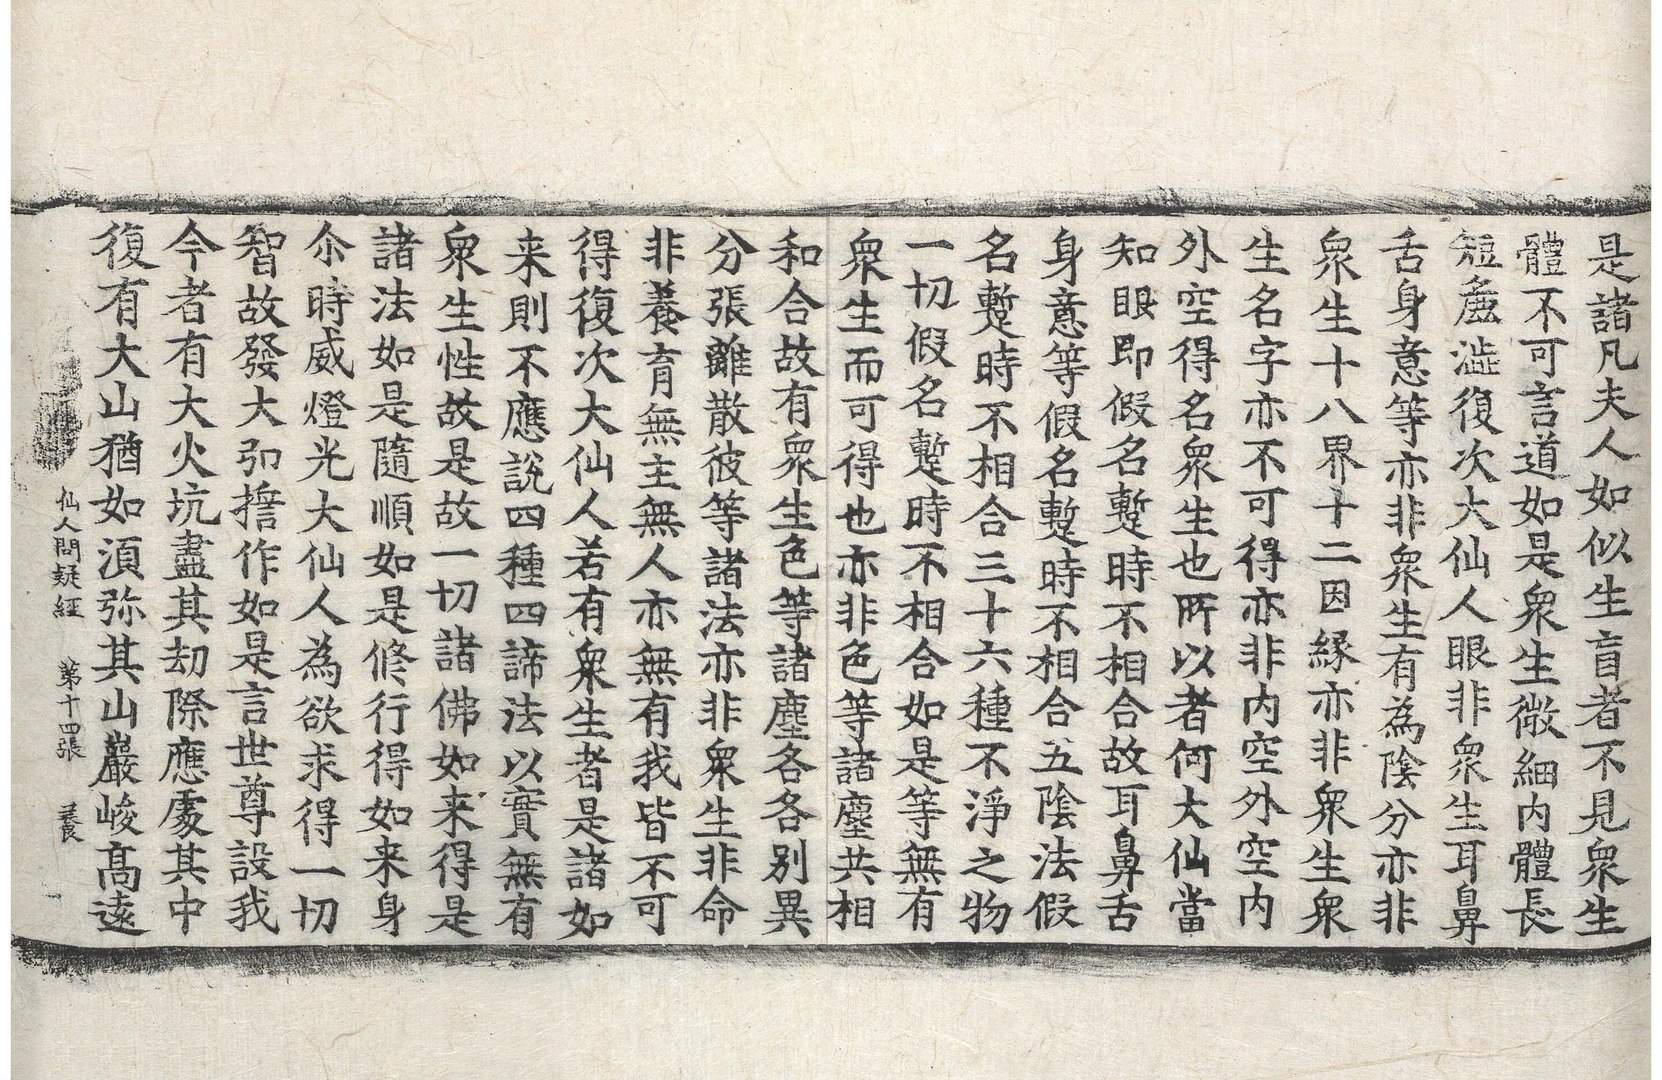 是諸凡夫人如似生盲者不見衆生
體不可言道如是衆生微細内體長
短麁澁復次大仙人眼非衆生耳鼻
舌身意等亦非衆生有為陰分亦非
衆生十八界十二因緣亦非衆生衆
生名字亦不可得亦非内空外空内
外空得名衆生也所以者何大仙當
知眼即假名蹔時不相合故耳鼻舌
身意等假名蹔時不相合五陰法假
名蹔時不相合三十六種不淨之物
一切假名蹔時不相合如是等無有
衆生而可得也亦非色等諸塵共相
和合故有衆生色等諸塵各各別異
分張離散彼等諸法亦非衆生非命
非養育無主無人亦無有我皆不可
得復次大仙人若有衆生者是諸如
来則不應說四種四諦法以實無有
衆生性故是故一切諸佛如来得是
諸法如是隨順如是修行得如来身
尒時威燈光大仙人為欲求得一切
智故發大弘誓作如是言世尊設我
今者有大火坑盡其劫際應處其中
復有大山猶如湏弥其山巖峻髙遠
仙人問疑經 第十四張